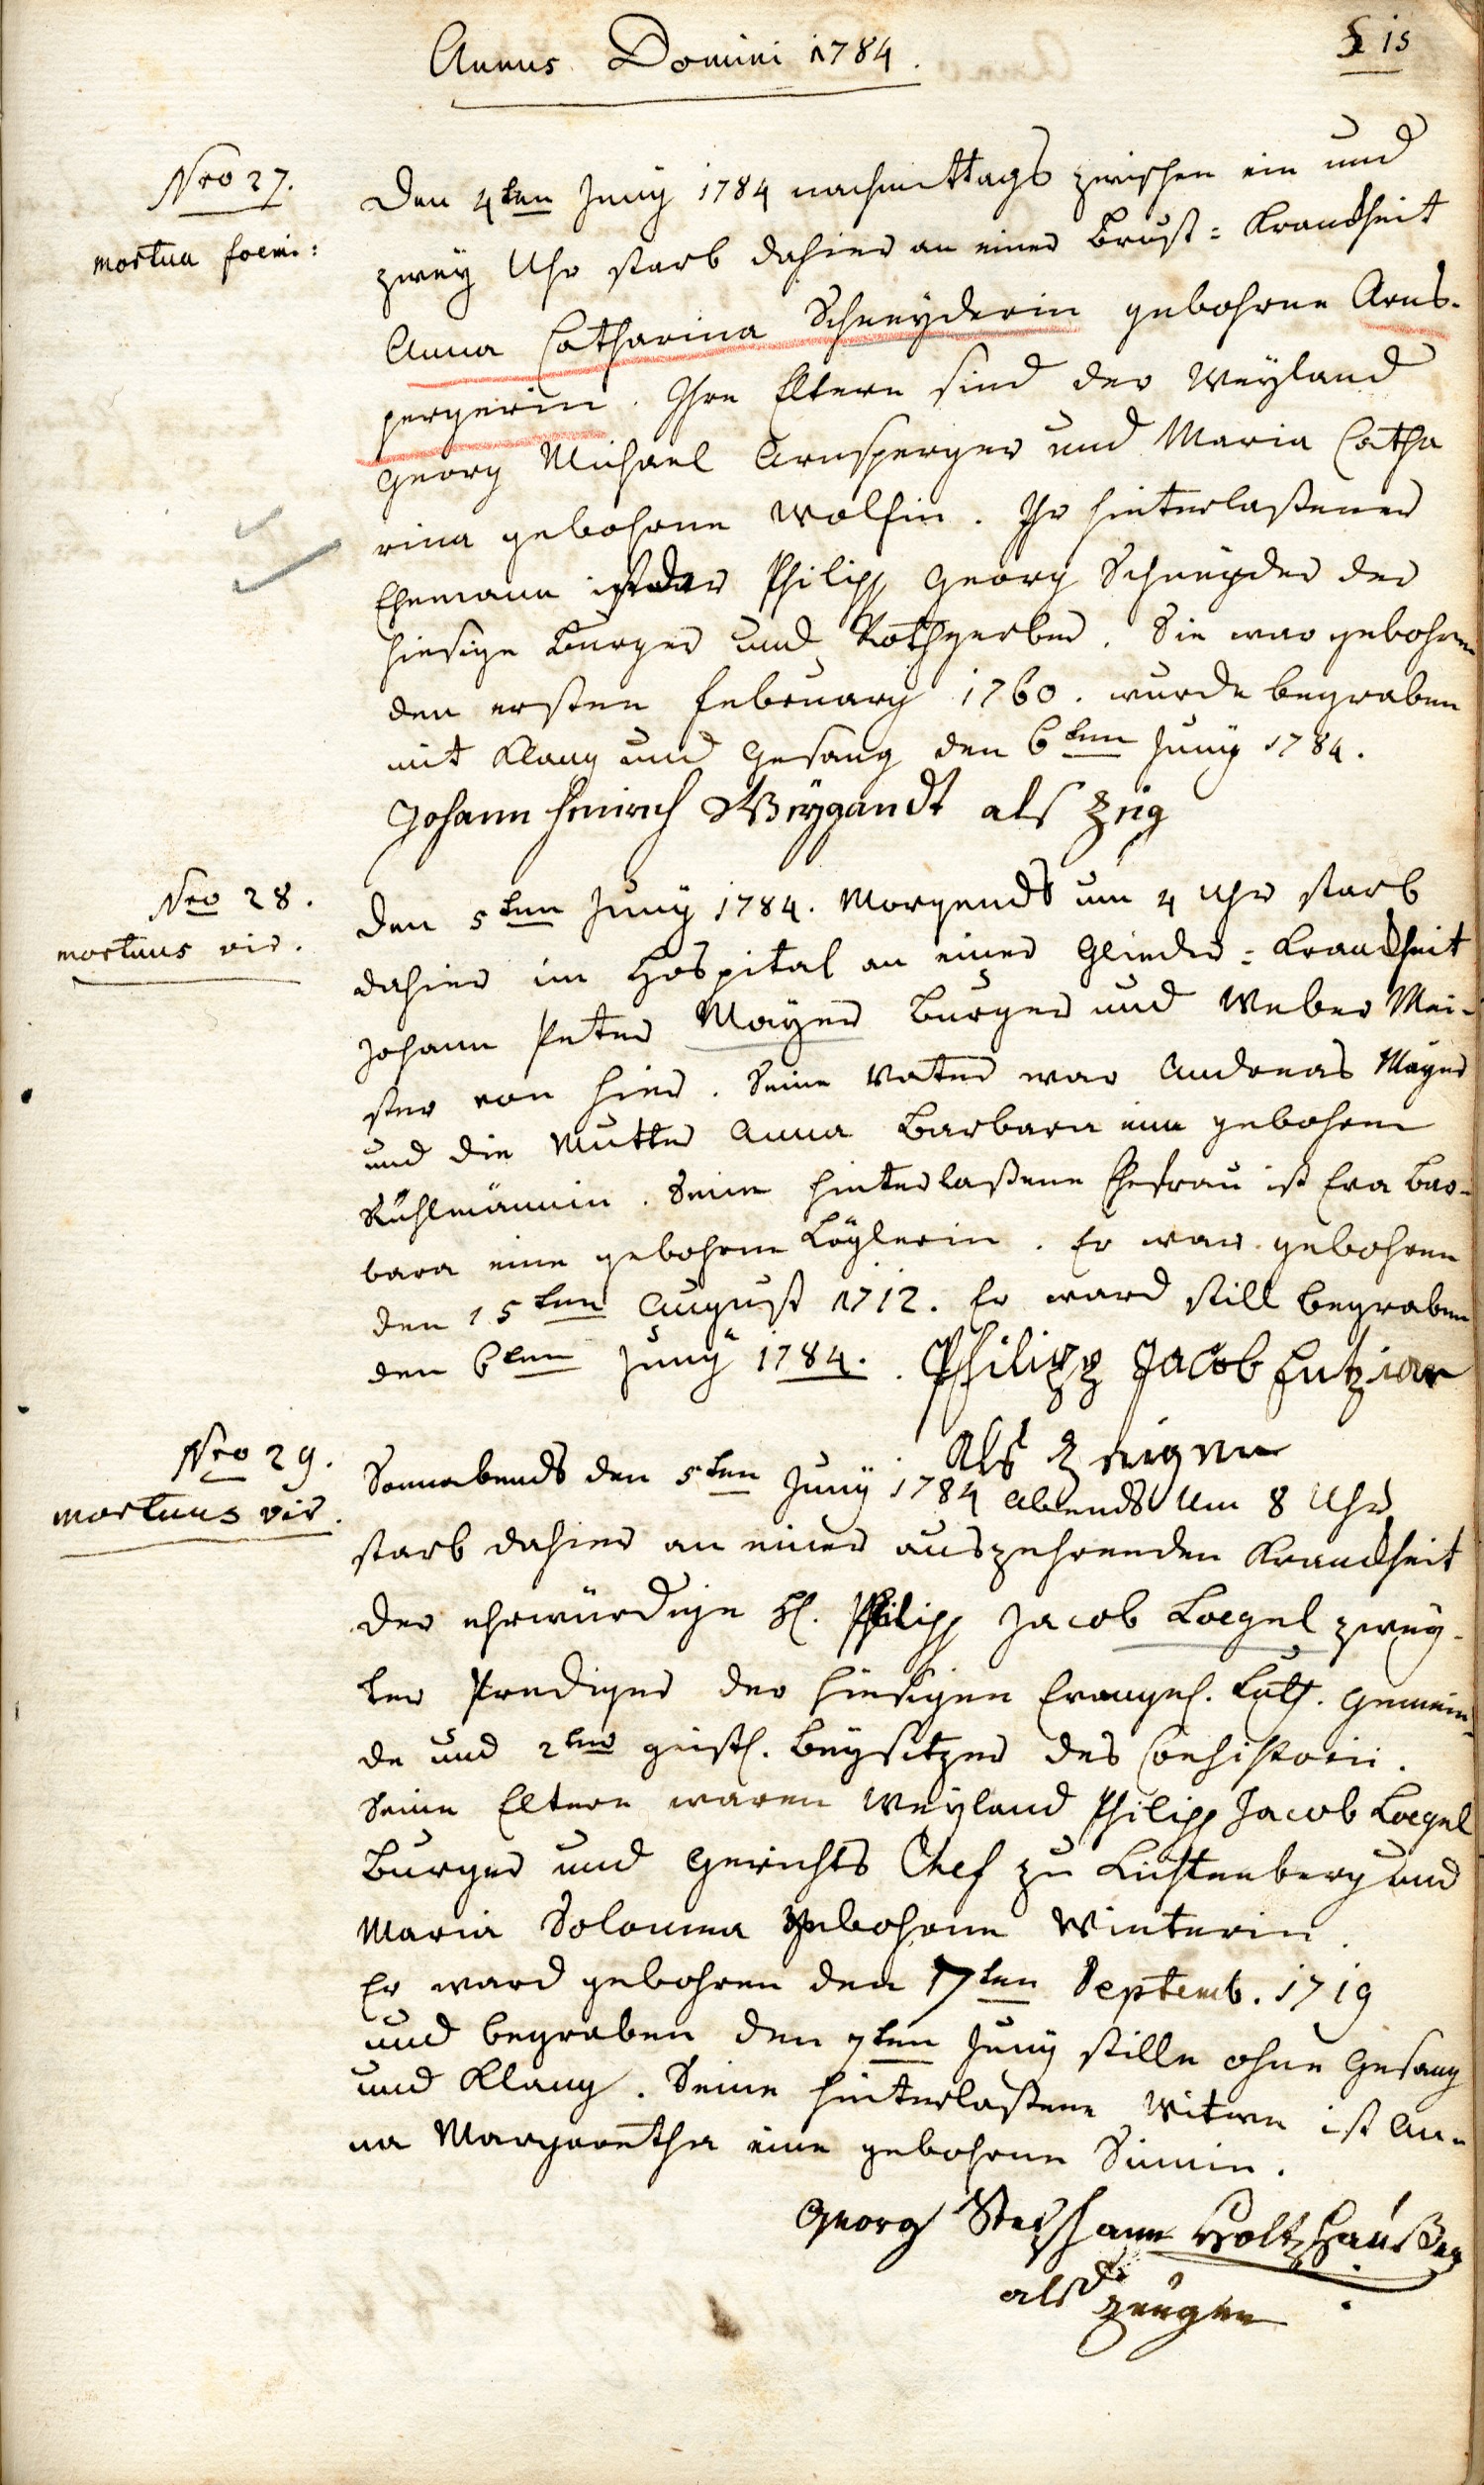 Annus Domini 1784.
15
Nro 27.
mortua foemi:
Den 4ten Juny 1784 nachmittags zwischen ein und
zwey Uhr starb dahier an einer Brust-Krankheit
Anna Catharina Schneyderin gebohrne Arns-
pergerin. Ihre Eltern sind der Weyland
Georg Michael Arnsperger und Maria Catha
rina gebohrne Wolfin. Ihr hinterlaßener
Ehemann ist der Philipp Georg Schneyder der
hiesige Burger und Rothgerber. Sie war gebohren
den ersten February 1760. wurde begraben
mit Klang und Gesang den 6ten Juny 1784.
Johann Heinrich Weygandt als Zeig
Nro 28.
mortuus vir.
Den 5ten Juny 1784. Morgends um 4 Uhr starb
dahier im Hospital an einer Glieder-Krankheit
Johann Peter Mayer Burger und Weber Mei-
ster von hier. Seine Vater war Andreas Mayer
und die Mutter Anna Barbara eine gebohrne
Kühlmännin. Seine hinterlaßene Ehefrau ist Eva Bar-
bara eine gebohrne Löylerin. Er war gebohren
den 15ten August 1712. Er ward still begraben
den 6ten Juny 1784. Philipp Jacob
als Zeigen
Nro 29.
mortuus vir.
Sonnabends den 5ten Juny 1784 abends um 8 Uhr
starb dahier an einer auszehrenden Krankheit
der ehrwürdige H. Philipp Jacob Loegel zwey-
ter Prediger der hiesigen Evangel. Luth. Gemein-
de und 2ter geistl. Beysitzer des Consistorii.
Seine Eltern waren Weyland Philipp Jacob Loegel
Burger und Gerichts Chef zu Lichtenberg und
Maria Solomea gebohrne Winterin.
Er ward gebohren den 17ten Septemb. 1719
und begraben den 7ten Juny stille ohne Gesang
und Klang. Seine hinterlaßene Witwe ist An-
na Margaretha eine gebohrne Simin.
Georg Stephann Holtzhaußen
als Zeugen